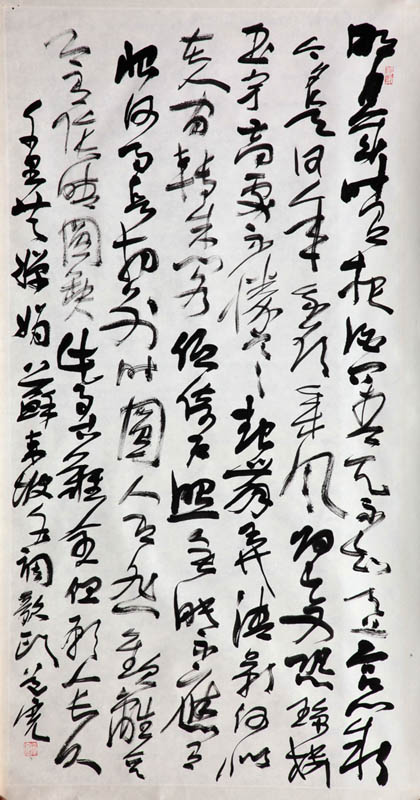 明月幾時有把酒問青天不知天上宮闕
今夕是何年我欲乘风歸去又恐瓊樓
玉宇高處不勝寒起舞弄清影何似
在人間轉朱閣低綺户照無眠不應有
恨何事長向別時圓人有悲歡離合
月有陰晴圓缺此事古難全但願人長久
千里共嬋娟蘇東坡水調歌頭